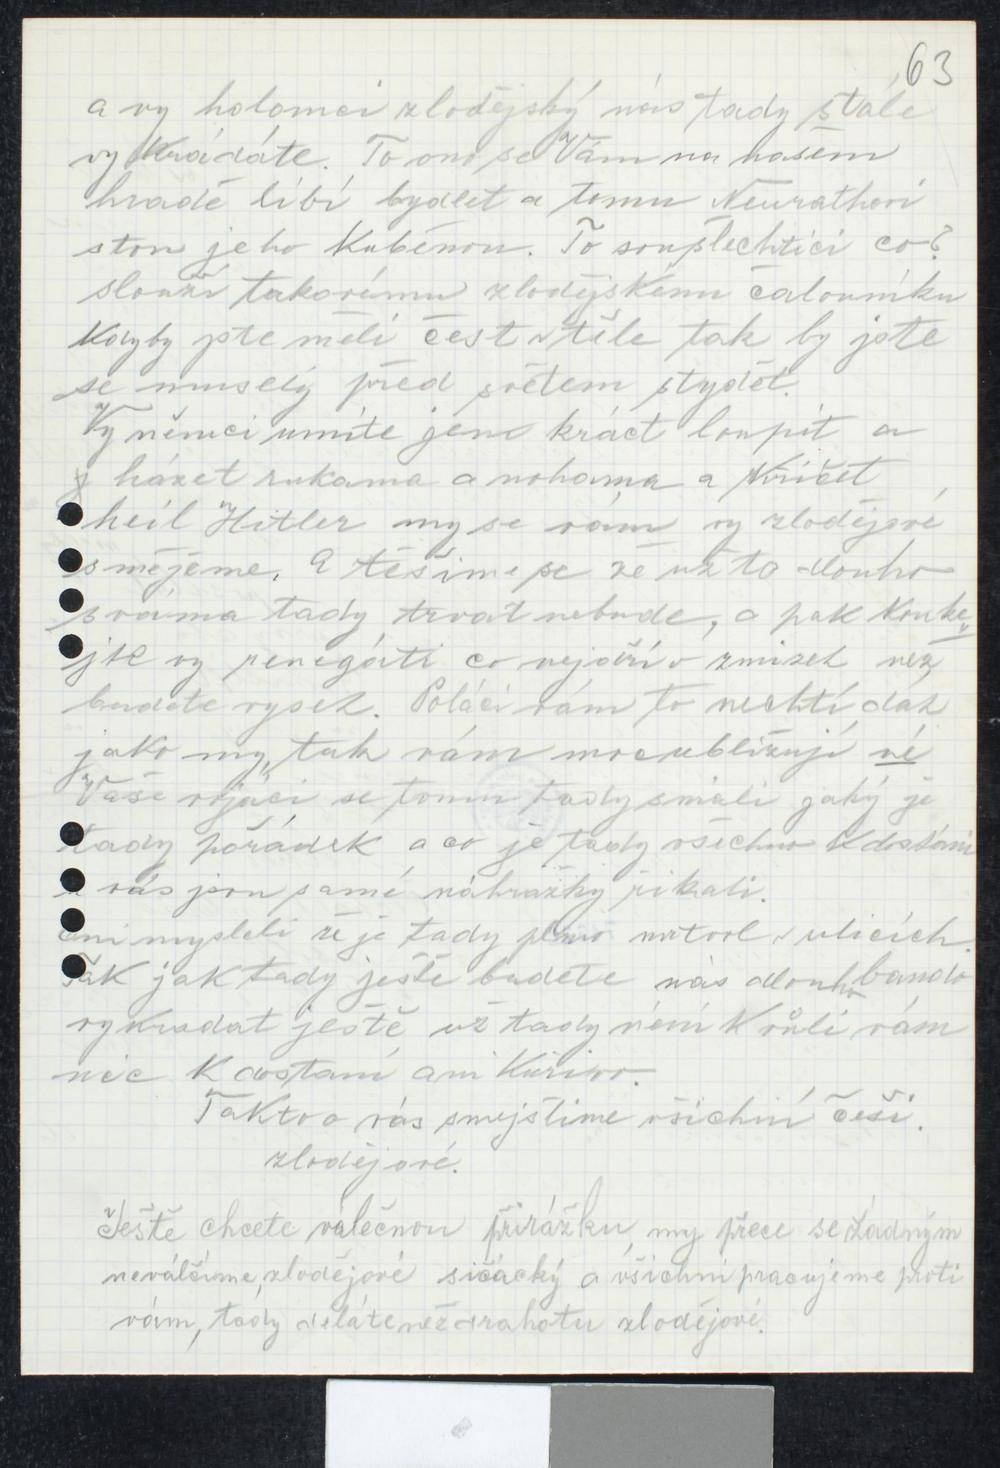 63
a vy holomci zlodějský nás tady stále
vy kradáte. To ono se Vám na našem
hradě líbí bydlet a tomu Neurathovi
stou jeho Kubénou. To sou šlechtici co?
slouží takovému zlodějskému čalouníku
kdyby jste měli čest v těle tak by jste
se musely před světem stydět.
Vy němci umíte jen kráct loupit a
házet rukama a nohama a křičet
heil Hitler my se vám vy zlodějové
smějeme. A těšíme se že už to dlouho
s váma tady trvat nebude, a pak kouke
jte vy renegáti co nejdřív zmizet než
budete vyset. Poláci vám to nechtí dát
jako my, tak vám moc ubližují né
Vaše vojáci se tomu tady smáli jaký je
tady pořádek a co je tady všechno k dostání
u vás jsou samé náhražky říkali.
oni mysleli že je tady plno mrtvol v ulicích.
Tak jak tady ještě budete nás dlouho bando
vykradat ještě už tady není k vůli vám
nic k dostaní ani kuřivo.
Takto o vás smejšlíme všichni češi.
zlodějové.
Ještě chcete válečnou přirážku, my přece se žádným
neválčíme, zlodějové sičácký a všichni pracujeme proti
vám, tady děláte než drahotu zlodějové.